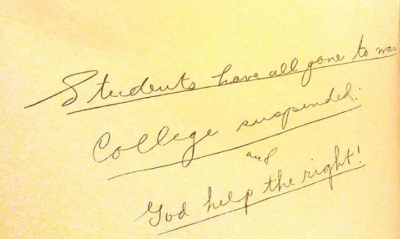 Students have all gone to war
College suspended;
and
God help the right!